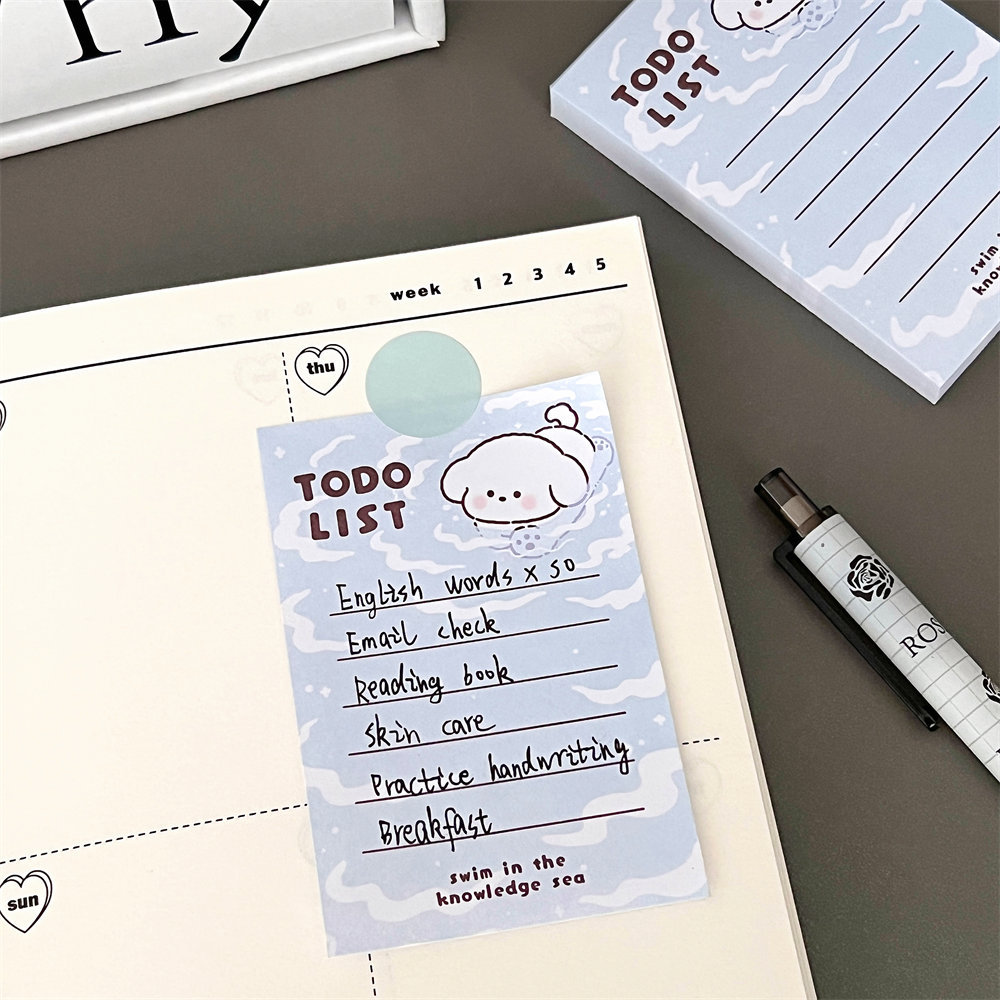 TODO
LIST
week 1 2 3 4 5
thu
TODO
LIST
English words x 50
Email check
Reading book
Skin care
Practice handwriting
Breakfast
swim in the
knowledge sea
sun
ROS
swim